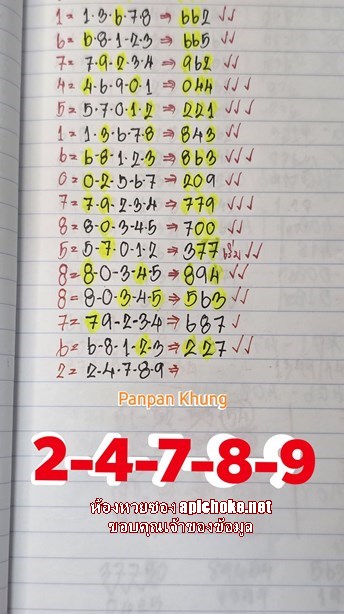 1 = 1·3·6·7·8 ⇒ 662 ✓✓
6 = 6·8·1·2·3 ⇒ 665 ✓✓
7 = 7·9·2·3·4 ⇒ 962 ✓✓
4 = 4·6·9·0·1 ⇒ 044 ✓✓✓
5 = 5·7·0·1·2 ⇒ 221 ✓✓✓
1 = 1·3·6·7·8 ⇒ 843 ✓✓
6 = 6-8·1·2·3 ⇒ 863 ✓✓✓
0 = 0-2·5·6·7 ⇒ 209 ✓✓
7 = 7-9·2·3·4 ⇒ 779 ✓✓✓
8 = 8-0·3·4·5 ⇒ 700 ✓✓
5 = 5-7·0·1·2 ⇒ 377 ✓✓
8 = 8-0-3·4·5 ⇒ 894 ✓✓
8 = 8-0-3·4·5 ⇒ 563 ✓✓
7 = 79-2-3·4 ⇒ 687 ✓
6 = 6-8·1·2·3 ⇒ 227 ✓✓
2 = 2-4·7·8·9 ⇒
Panpan Khung
2-4-7-8-9
ห้องหวยซอง aplchoke.net
ขอบคุณเจ้าของข้อมูล